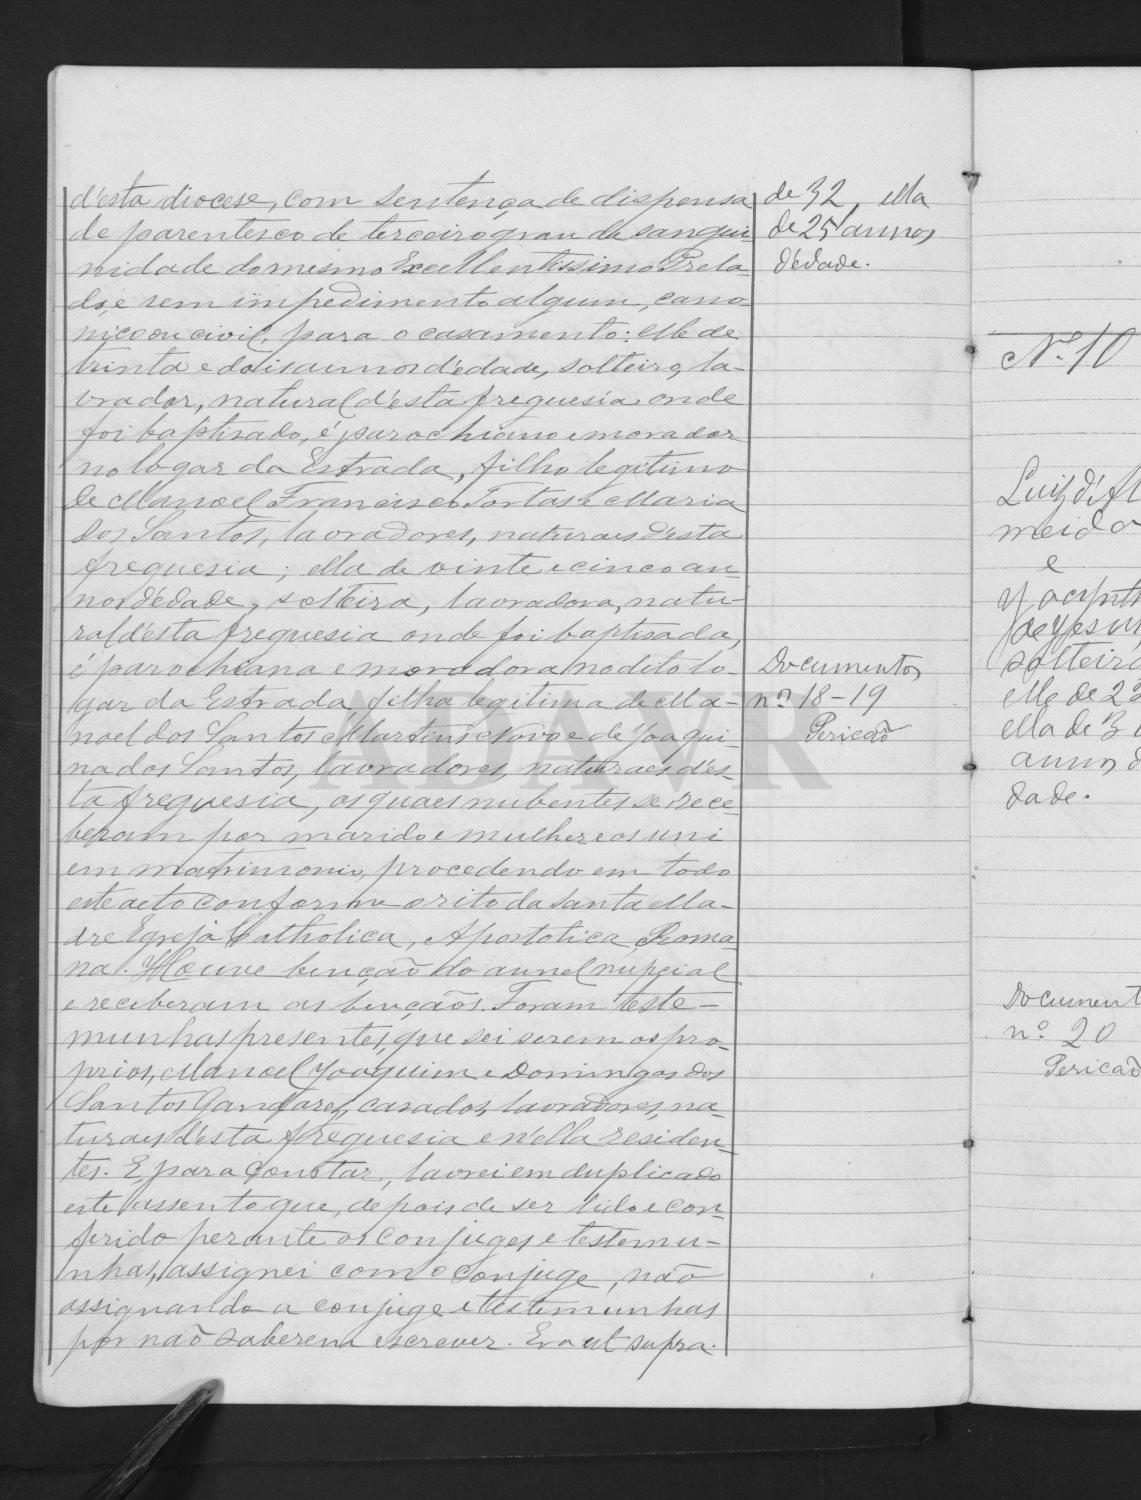 d'esta diocese, com sentença de dispensa
de parentesco de terceiro grau de sangui
nidade do mesmo Excellentissimo Prela-
do, e sem impedimento algum, cano
nico ou civil, para o casamento: elle de
trinta e dois annos d'edade, solteiro, la-
vrador, natural d'esta freguesia onde
foi baptisado, é parochiano e morador
no logar da Estrada, filho legitimo
de Manoel Francisco Tortas e Maria
dos Santos, lavradores, naturaes d'esta
freguesia; ella de vinte e cinco an-
nos d'edade, solteira, lavradora, natu-
ral d'esta freguesia onde foi baptisada,
é parochiana e moradora no dito lo-
gar da Estrada, filha legitima de Ma-
noel dos Santos Martins Novo e de Joaqui-
na dos Santos, lavradores, naturaes d'es-
ta freguesia, os quaes nubentes se rece-
beram por marido e mulher e os uni
em matrimonio, procedendo em todo
este acto conforme o rito da Santa Ma-
dre Egreja Catholica, Apostolica Roma-
na. Houve benção do annel nupcial
e receberam as bençãos. Foram teste-
munhas presentes, que sei serem os pro-
prios, Manoel Joaquim e Domingos dos
Santos Gandares, casados, lavradores, na-
turaes d'esta freguesia e n'ella residen-
tes. E para constar, lavrei em duplicado
este assento que, depois de ser lido e con-
ferido perante os conjuges e testemu-
nhas, assignei com o conjuge, não
assignando a conjuge e testemunhas
por não saberem escrever. Era ut supra.
de 32, ella
de 25 annos
d'edade.
Documentos
nos 18-19
Pericão
ADAVR
Nº 10
Luiz d'Al
meida
e
solteiro
elle de 23
ella de 3
annos d
dade.
Document
nº 20
Pericão